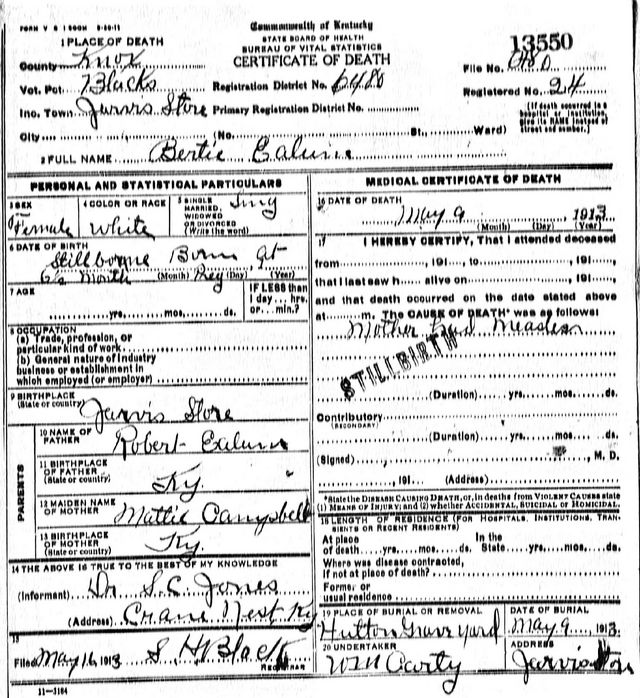 FORM V S 1 500M 8-20-11
Commonwealth of Kentucky
STATE BOARD OF HEALTH
BUREAU OF VITAL STATISTICS
CERTIFICATE OF DEATH
13550
1 PLACE OF DEATH
County Knox
File No.
Vot. Pct. Blacks
Registration District No. 6480
Registered No. 24
Inc. Town Jarvis Store
Primary Registration District No.
(If death occurred in a hospital or institution, give its NAME instead of street and number.)
City (No. St., Ward)
2 FULL NAME Bertie
PERSONAL AND STATISTICAL PARTICULARS
3 SEX
Female
4 COLOR OR RACE
White
5 SINGLE
MARRIED,
WIDOWED
OR DIVORCED
(Write the word)
Sing
6 DATE OF BIRTH
Stillborne Born at
6½ Month Preg
(Month) (Day) (Year)
7 AGE
yrs. mos. ds.
IF LESS than
1 day... hrs.
or... min.?
8 OCCUPATION
(a) Trade, profession, or
particular kind of work
(b) General nature of industry
business or establishment in
which employed (or employer)
9 BIRTHPLACE
(State or country)
Jarvis Store
PARENTS
10 NAME OF
FATHER
Robert
11 BIRTHPLACE
OF FATHER
(State or country)
Ky.
12 MAIDEN NAME
OF MOTHER
Mattie Campbell
13 BIRTHPLACE
OF MOTHER
(State or country)
Ky.
14 THE ABOVE IS TRUE TO THE BEST OF MY KNOWLEDGE
(Informant) Dr S.C. Jones
(Address) Crane Nest Ky
15
Filed May 16, 1913 S. H. Black
REGISTRAR
11-3184
MEDICAL CERTIFICATE OF DEATH
16 DATE OF DEATH
May 9 1913
(Month) (Day) (Year)
17 I HEREBY CERTIFY, That I attended deceased
from , 191..., to , 191...,
that I last saw h alive on , 191...,
and that death occurred on the date stated above
at m. The CAUSE OF DEATH* was as follows:
Mother had Measles
STILLBIRTH
(Duration) yrs. mos. ds.
Contributory
(SECONDARY)
(Duration) yrs. mos. ds.
(Signed) , M. D.
, 191 (Address)
*State the DISEASE CAUSING DEATH, or, in deaths from VIOLENT CAUSES state
(1) MEANS OF INJURY; and (2) whether ACCIDENTAL, SUICIDAL or HOMICIDAL.
18 LENGTH OF RESIDENCE (FOR HOSPITALS, INSTITUTIONS, TRANSIENTS OR RECENT RESIDENTS)
At place of death yrs. mos. ds. In the State yrs. mos. ds.
Where was disease contracted,
if not at place of death?
Former or
usual residence
19 PLACE OF BURIAL OR REMOVAL
Hutton Grave yard
DATE OF BURIAL
May 9 1913
20 UNDERTAKER
ADDRESS
Jarvis